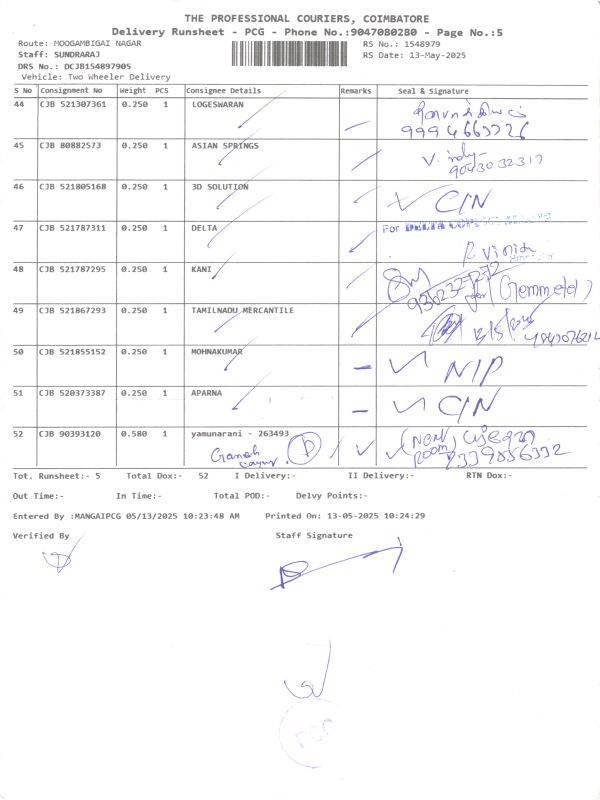 THE PROFESSIONAL COURIERS, COIMBATORE
Delivery Runsheet - PCG - Phone No.:9047080280 - Page No.:5
Route: MOOGAMBIGAI NAGAR
RS No.: 1548979
Staff: SUNDRARAJ
RS Date: 13-May-2025
DRS No.: DCJB154897905
Vehicle: Two Wheeler Delivery
S No Consignment No Weight PCS Consignee Details Remarks Seal & Signature
44 CJB 521307361 0.250 1 LOGESWARAN
45 CJB 80882573 0.250 1 ASIAN SPRINGS
9043032317
46 CJB 521805168 0.250 1 3D SOLUTION C/N
47 CJB 521787311 0.250 1 DELTA For DELTA
48 CJB 521787295 0.250 1 KANI
(Gemmeld)
49 CJB 521867293 0.250 1 TAMILNADU MERCANTILE
50 CJB 521855152 0.250 1 MOHNAKUMAR N/P
51 CJB 520373387 0.250 1 APARNA C/N
52 CJB 90393120 0.580 1 yamunarani - 263493
Ganesh
(New Room)
Tot. Runsheet:- 5 Total Dox:- 52 I Delivery:- II Delivery:- RTN Dox:-
Out Time:- In Time:- Total POD:- Delvy Points:-
Entered By :MANGAIPCG 05/13/2025 10:23:48 AM Printed On: 13-05-2025 10:24:29
Verified By Staff Signature
PCG